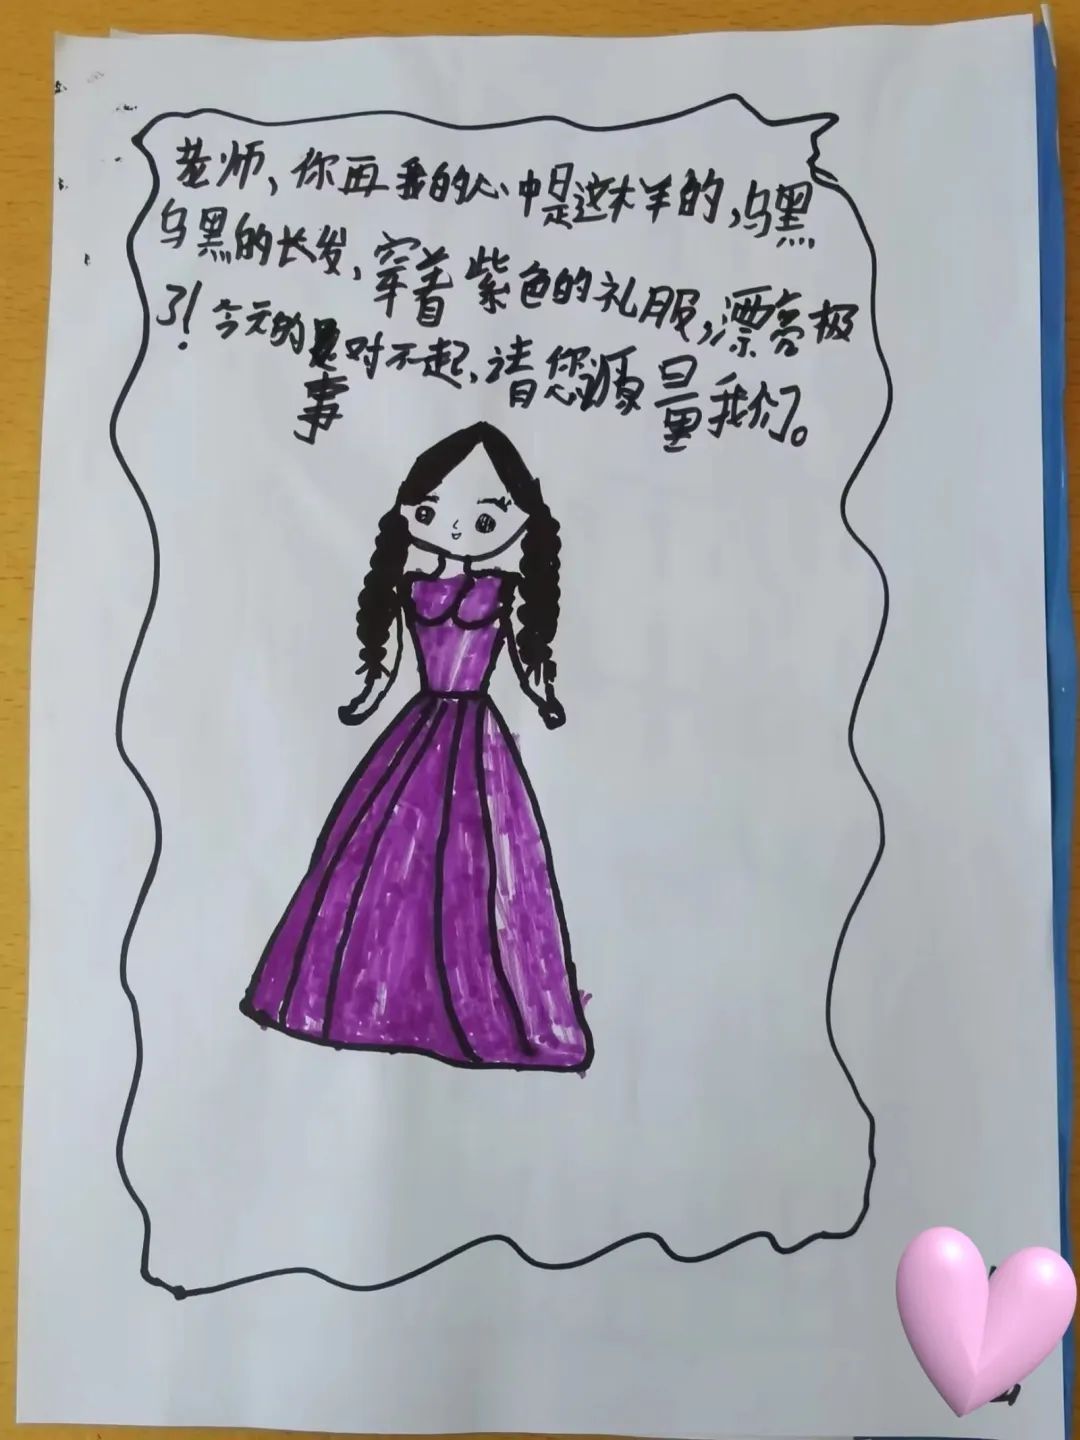 老师，你再我的心中是这样的，乌黑
乌黑的长发，穿着紫色的礼服，漂亮极
了！今天的事对不起，请您源量我们。